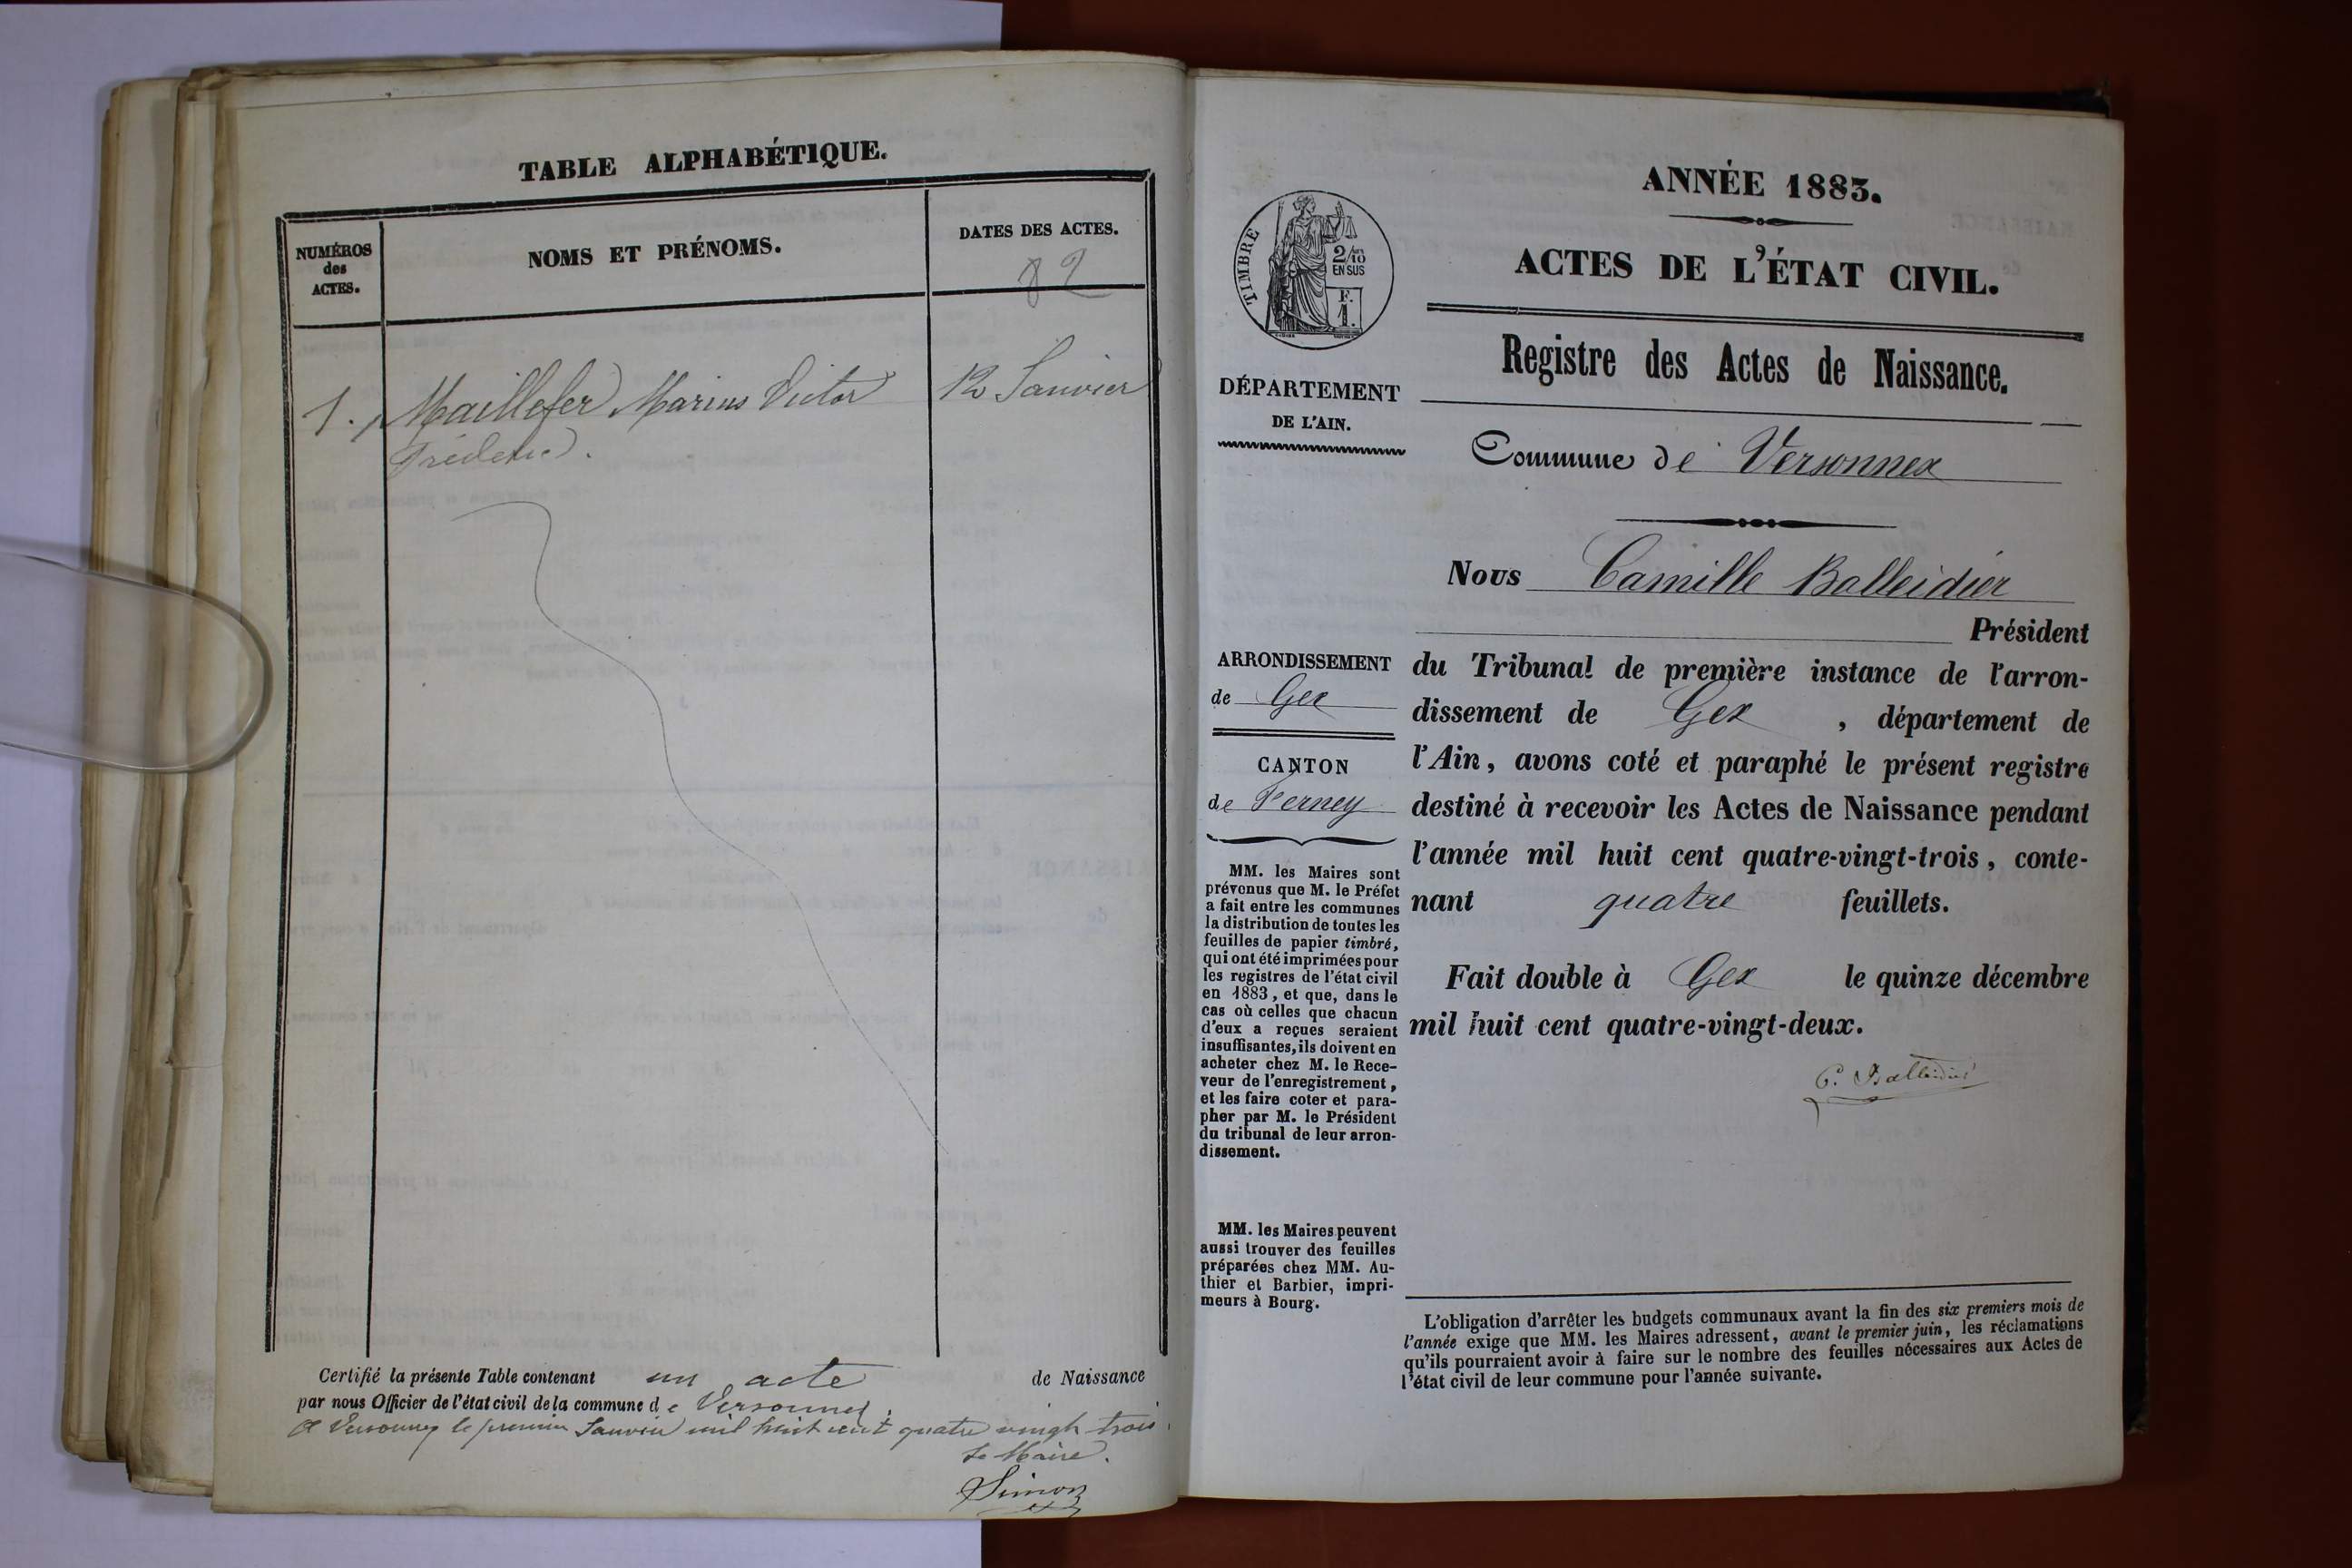 TABLE ALPHABÉTIQUE.
NUMÉROS
des
ACTES.
NOMS ET PRÉNOMS.
DATES DES ACTES.
82
1. Maillefer Marius Victor 12 Janvier
Frédéric.
Certifié la présente Table contenant un acte de Naissance
par nous Officier de l'état civil de la commune de Versonnex.
A Versonnex le premier Janvier mil huit cent quatre vingt trois.
Le Maire.
Simon
ANNÉE 1883.
ACTES DE L'ÉTAT CIVIL.
TIMBRE
2/10
EN SUS
F.
1.
Registre des Actes de Naissance.
DÉPARTEMENT
DE L'AIN.
Commune de Versonnex
Nous Camille Balleidier
Président
ARRONDISSEMENT
de Gex
CANTON
de Ferney
du Tribunal de première instance de l'arron-
dissement de Gex, département de
l'Ain, avons coté et paraphé le présent registre
destiné à recevoir les Actes de Naissance pendant
l'année mil huit cent quatre-vingt-trois, conte-
nant quatre feuillets.
Fait double à Gex le quinze décembre
mil huit cent quatre-vingt-deux.
C. Balleidier
MM. les Maires sont
prévenus que M. le Préfet
a fait entre les communes
la distribution de toutes les
feuilles de papier timbré,
qui ont été imprimées pour
les registres de l'état civil
en 1883, et que, dans le
cas où celles que chacun
d'eux a reçues seraient
insuffisantes, ils doivent en
acheter chez M. le Rece-
veur de l'enregistrement,
et les faire coter et para-
pher par M. le Président
du tribunal de leur arron-
dissement.
MM. les Maires peuvent
aussi trouver des feuilles
préparées chez MM. Au-
thier et Barbier, impri-
meurs à Bourg.
L'obligation d'arrêter les budgets communaux avant la fin des six premiers mois de
l'année exige que MM. les Maires adressent, avant le premier juin, les réclamations
qu'ils pourraient avoir à faire sur le nombre des feuilles nécessaires aux Actes de
l'état civil de leur commune pour l'année suivante.